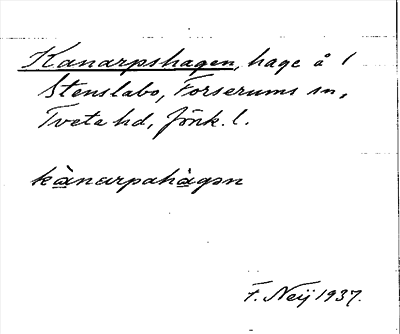 Kanarpshagen, hage å 1
Stenslabo, Forserums sn,
Tveta hd, Jönk. l.
kànarpahàgən
F. Neij 1937.